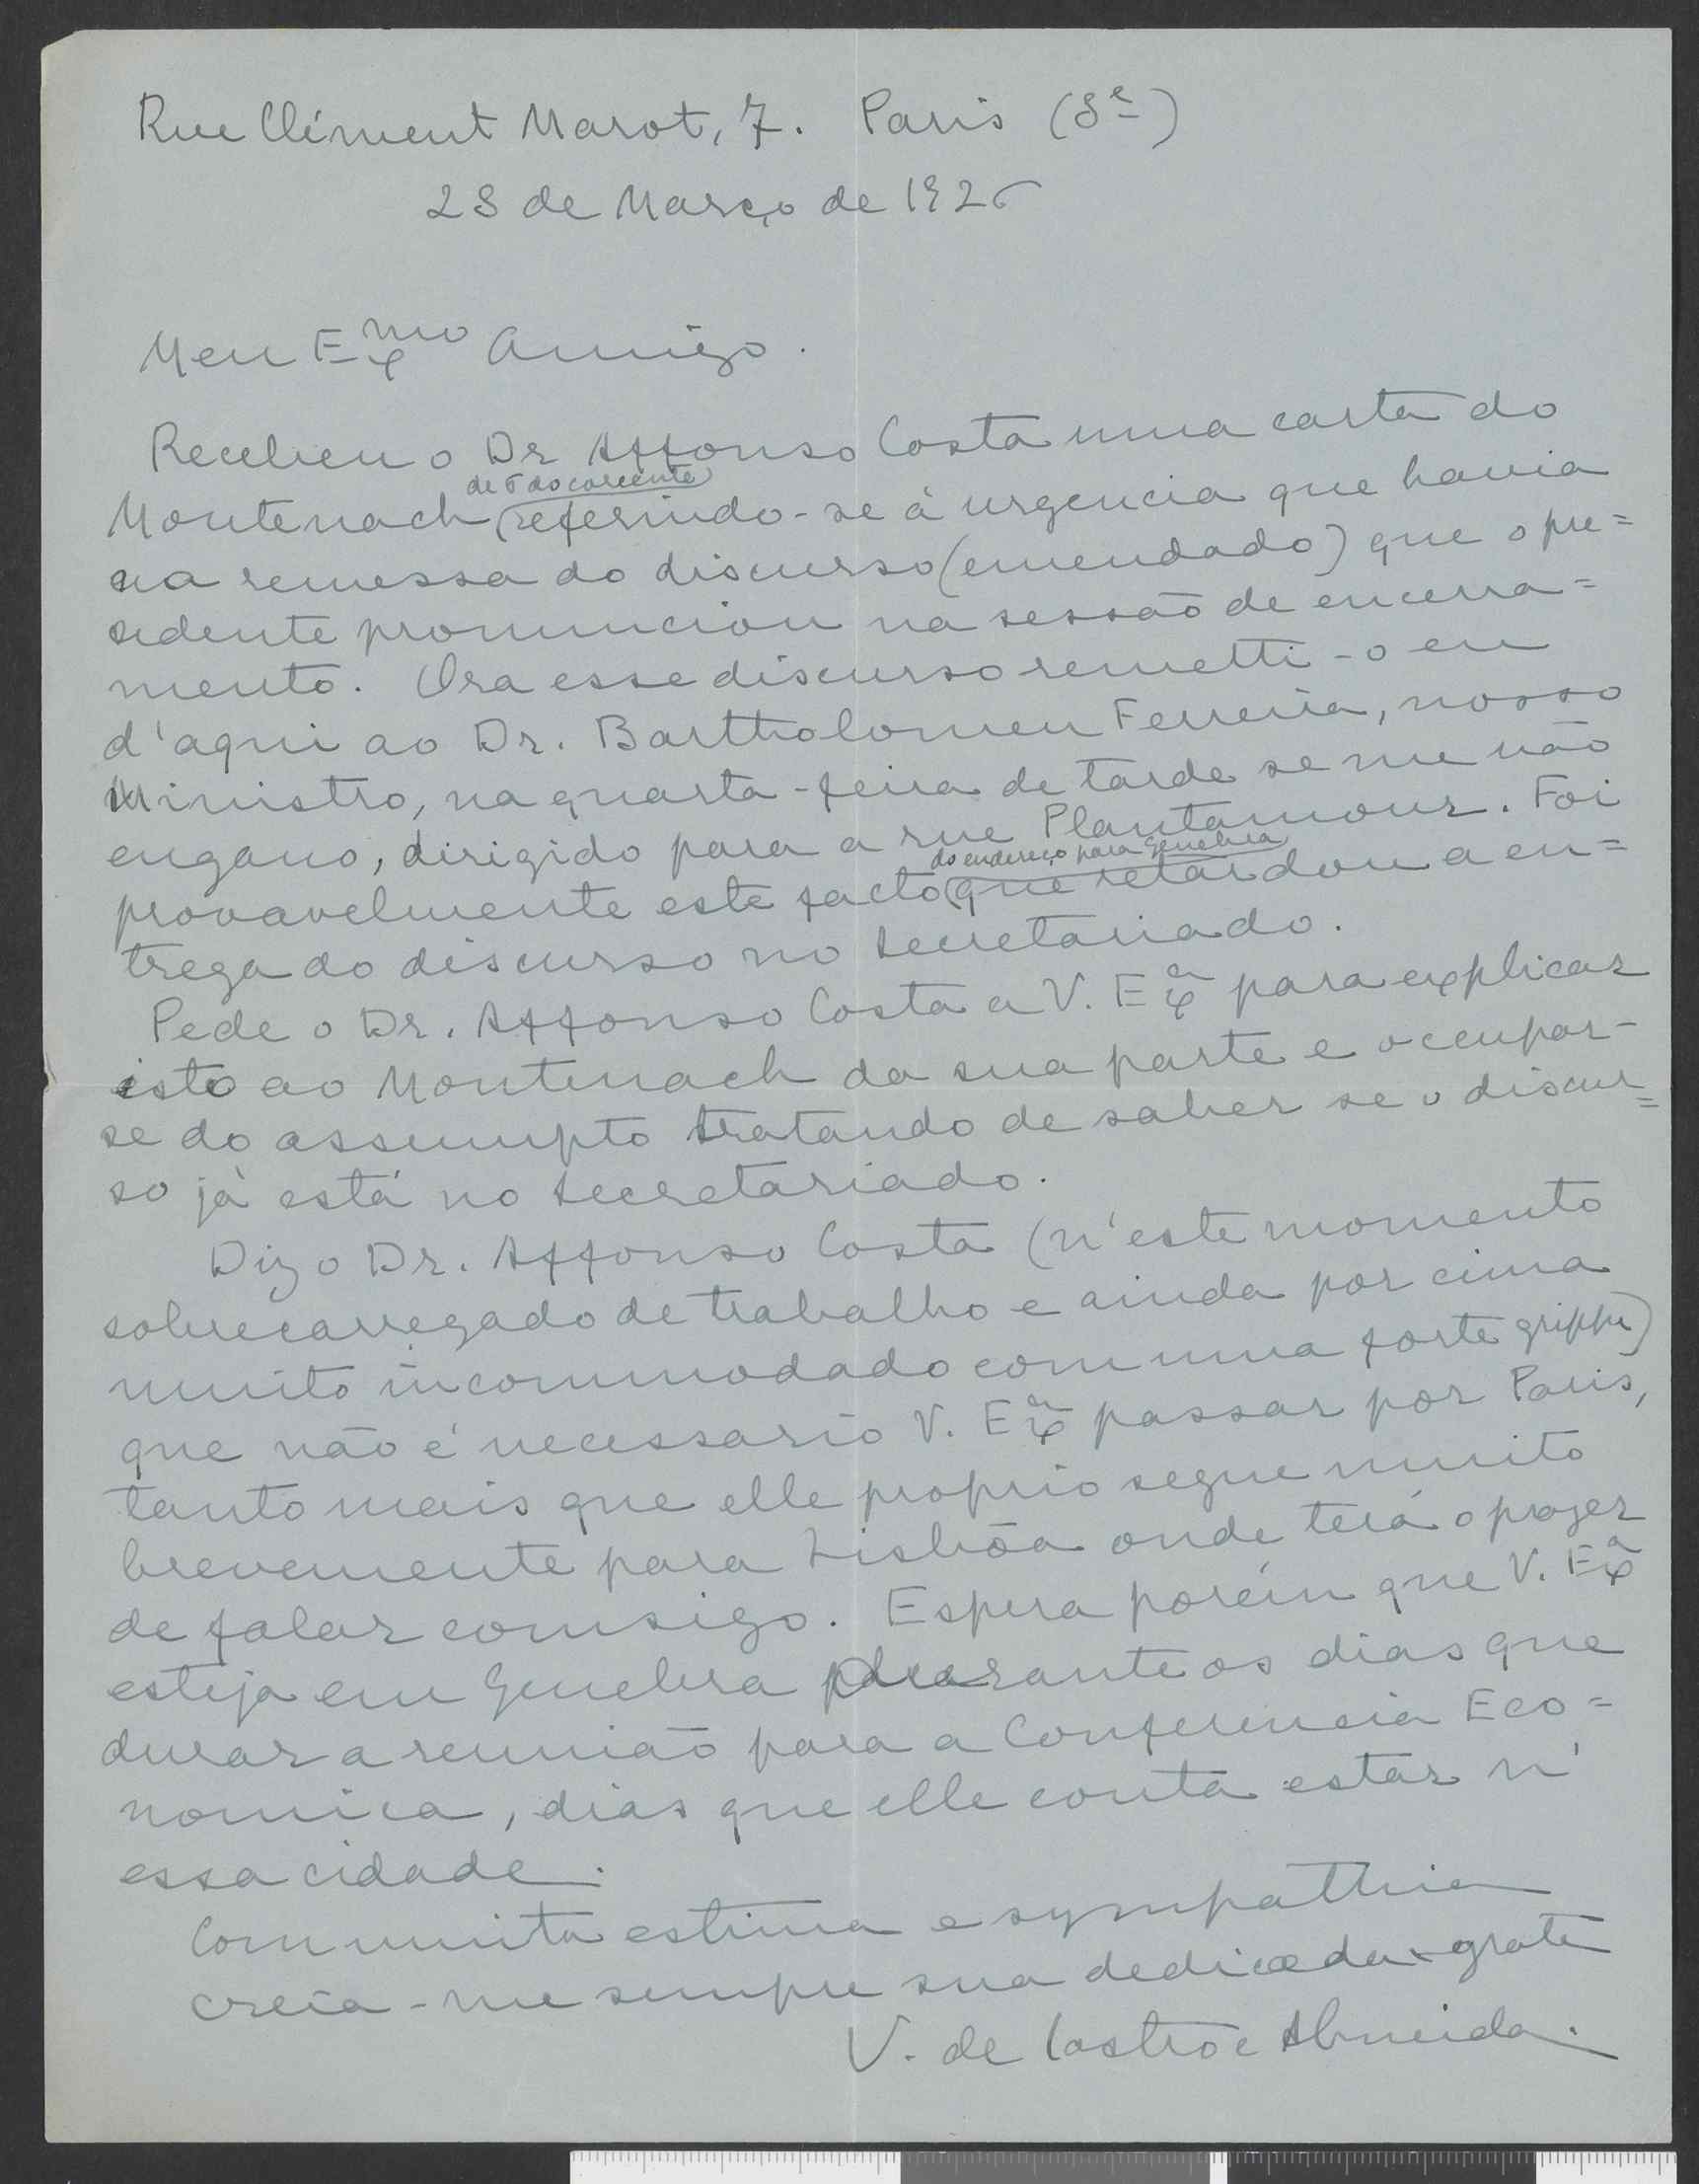 Rue Clément Marot, 7. Paris (8e)
28 de Março de 1926
Meu Exmo Amigo.
Recebeu o Dr Affonso Costa uma carta do
de 6 do corrente
Montenach referindo-se á urgencia que havia
na remessa do discurso (emendado) que o pre=
sidente pronunciou na sessão de encerra=
mento. Ora esse discurso remetti-o eu
d'aqui ao Dr. Bartholomeu Ferreira, nosso
Ministro, na quarta-feira de tarde se me não
engano, dirigido para a rue Plantamour. Foi
do endereço para Genebra
provavelmente este facto que retardou a en=
trega do discurso no Secretariado.
Pede o Dr. Affonso Costa a V. Exa para explicar
isto ao Montenach da sua parte e occupar-
se do assumpto tratando de saber se o discur=
so já está no Secretariado.
Diz o Dr. Affonso Costa (n'este momento
sobrecarregado de trabalho e ainda por cima
muito incommodado com uma forte grippe)
que não é necessario V. Exa passar por Paris,
tanto mais que elle proprio segue muito
brevemente para Lisbõa onde terá o prazer
de falar comsigo. Espera porém que V. Exa
esteja em Genebra durante os dias que
durar a reunião para a Conferencia Eco=
nomica, dias que elle conta estar n'
essa cidade.
Com muita estima e sympathia
creia-me sempre sua dedicada e grata
V. de Castro e Almeida.